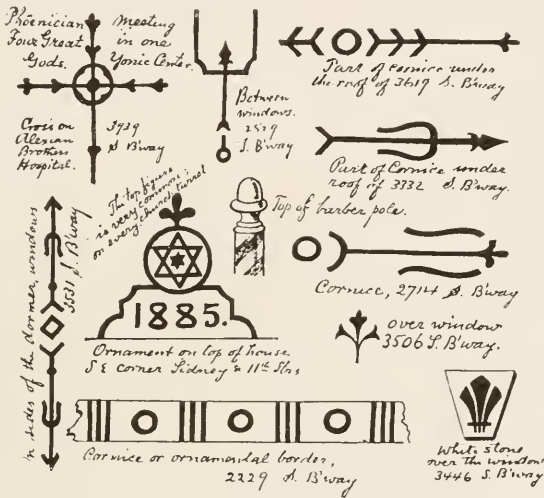 Phoenician
Four Great
Gods.
Meeting
in one
Yonic Center.
Cross on
Alexian
Brothers
Hospital.
3939
S B'way
Between
windows.
2529
S. B'way
Part of cornice under
the roof of 3619 S. B'way
Part of Cornice under
roof of 3332 S. B'way.
The top figure
is very common;
on every church turret
Top of barber pole.
1885.
Ornament on top of house
S E corner Sidney & 11th Sts
Cornice, 2714 S. B'way
over window
3506 S. B'way.
sides of the dormer, windows
3531 S. B'way
Cornice or ornamental border,
2229 S. B'way
White stone
over the window
3446 S. B'way